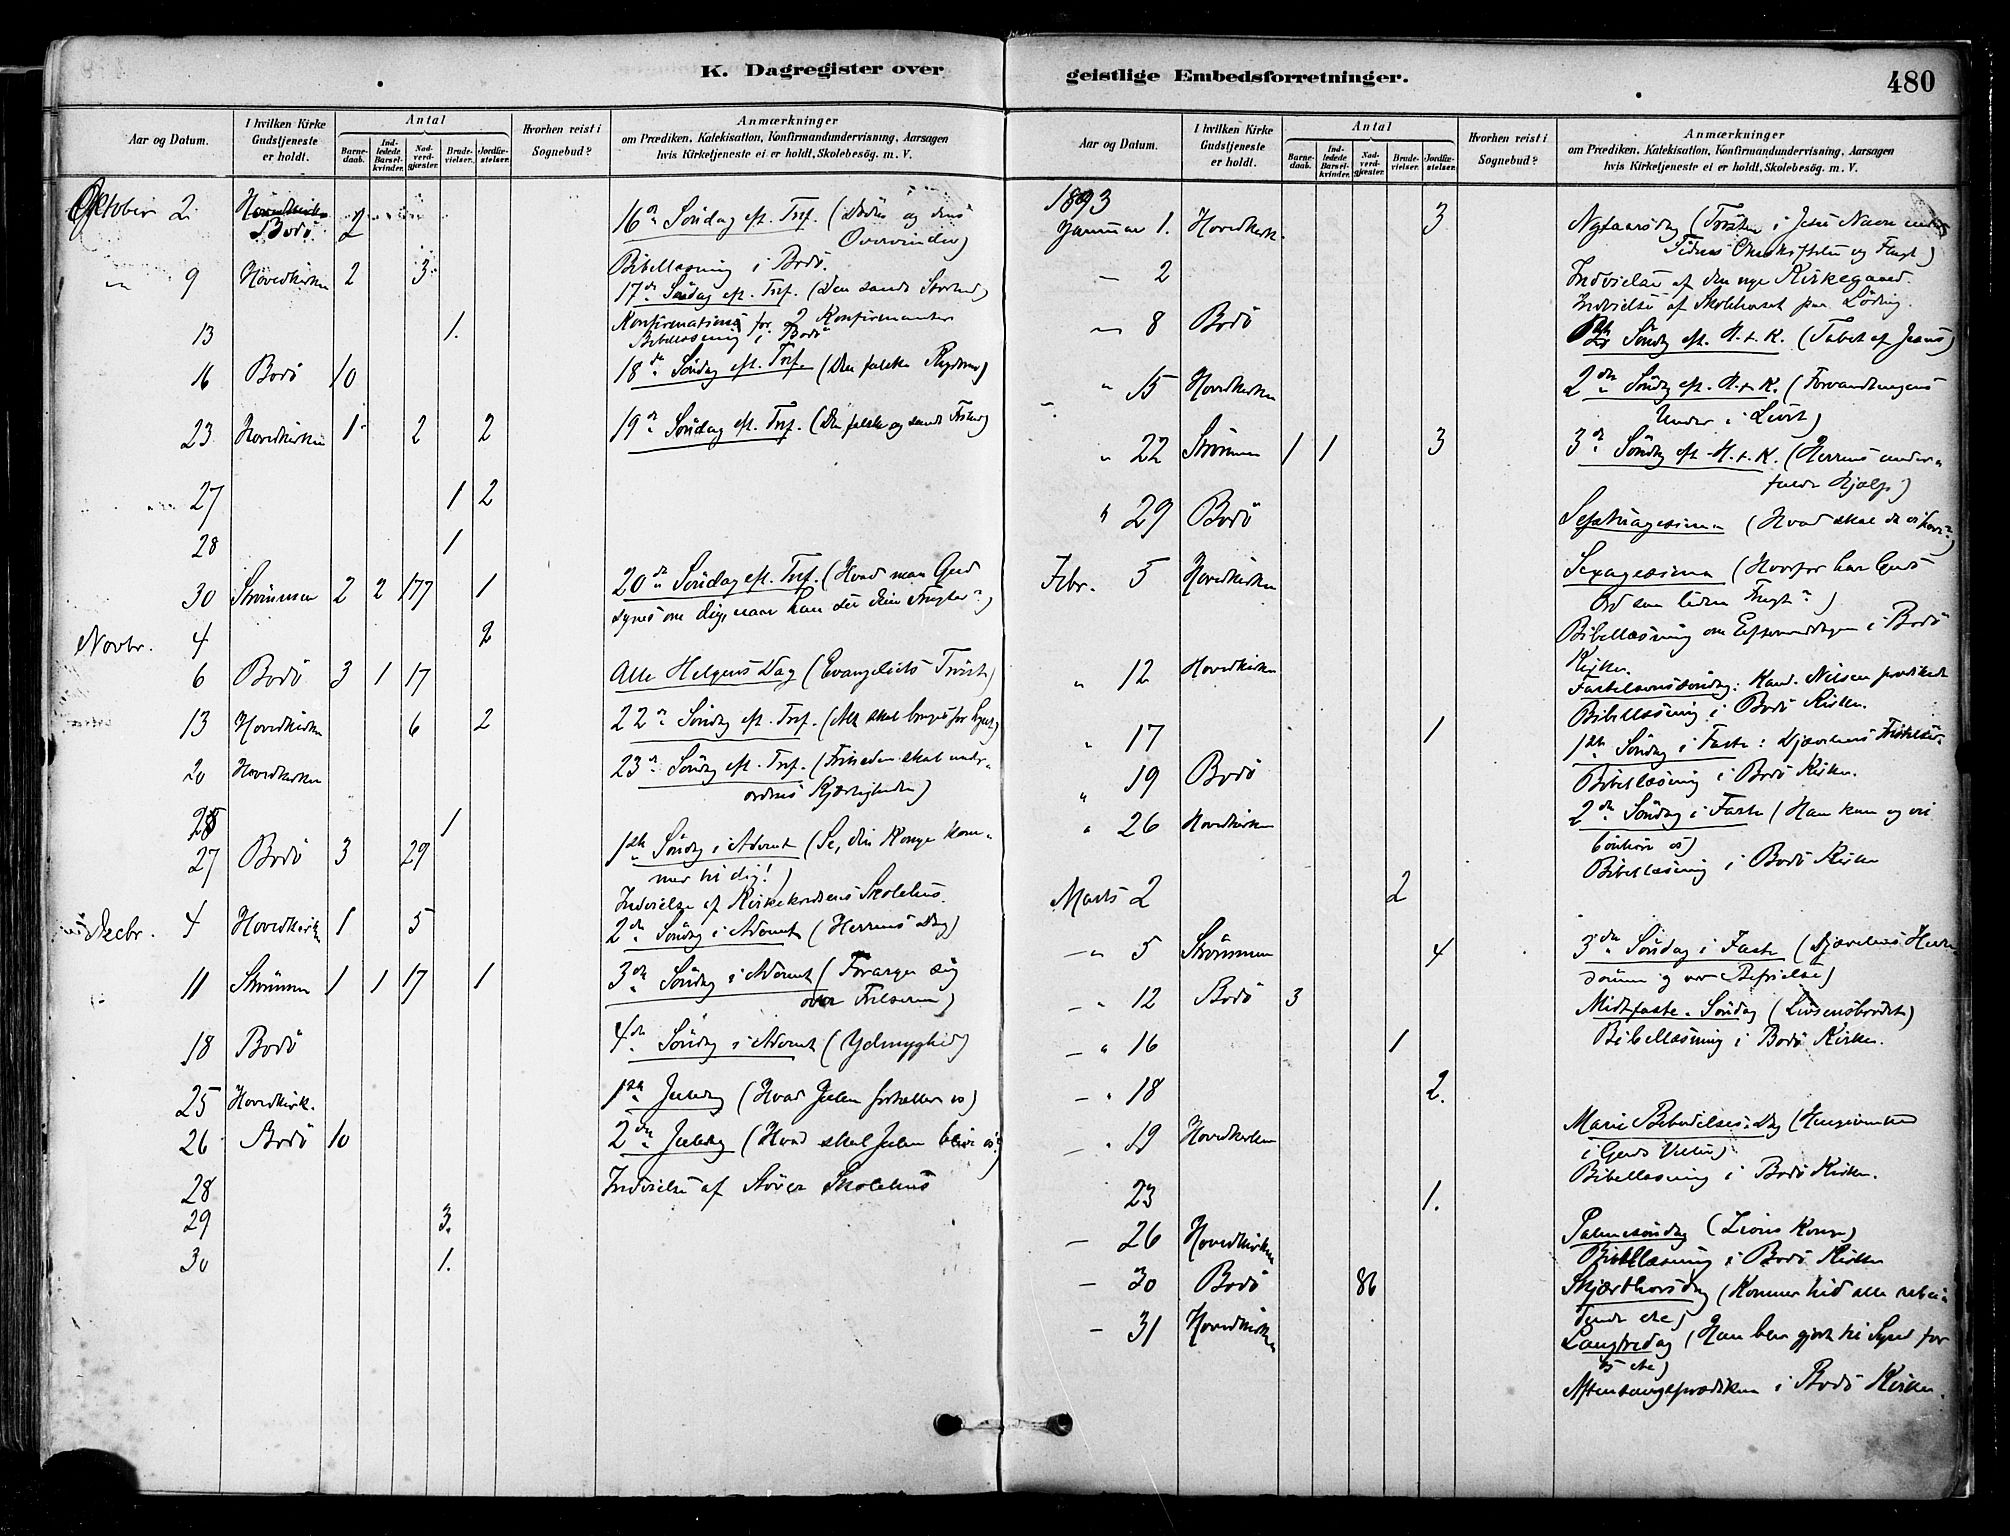 K. Dagregister over
geistlige Embedsforretninger.
480
Aar og Datum.
I hvilken Kirke Gudstjeneste er holdt.
Antal
Barne-daab.
Ind-ledede Barsel-kvinder.
Nad-verd-gjæster.
Brude-vielser.
Jordfæ-stelser.
Hvorhen reist i Sognebud?
Anmærkninger
om Prædiken, Katekisation, Konfirmandundervisning, Aarsagen
hvis Kirketjeneste ei er holdt, Skolebesög. m. V.
Oktober 2. Hovedkirke
Bodö 2 16de Söndag ef. Tref. (Döden og dens
Overvinder)
Bibellæsning i Bodö.
" 9 Hovedkirken 2 3 17de Söndag ef. Tref. (Den sande Storhed)
13 1. Konfirmation for 2 Konfirmanter
Bibellæsning i Bodö
16 Bodö 10 18de Söndag ef. Tref. (Den falske Rygdom)
23 Hovedkirken 1 2 2 19de Söndag eft. Tref. (Den falske og sande Frihed)
27 1 2
28 1
30 Strömmen 2 2 177 1 20de Söndag ef. Tref. (Hvad man Gud
synes om dig, naar han ser dine Frugter?)
Novbr. 4 2
6 Bodö 3 1 17 Alle Helgens Dag (Evangeliets Tröst)
13 Hovedkirken 6 2 22de Söndag ef. Tref. (Alt skal bruges for
20 Hovedkirken 23de Söndag ef. Tref. (Friheden skal under-
ordnes Kjærligheden)
28 1
27 Bodö 3 29 1ste Söndag i Advent (Se, din Konge kom-
mer til dig!)
Indvielse af Kirkekredsens Skolehus.
Decbr. 4 Hovedkirken 1 5 2den Söndag i Advent (Herrens Dag)
11 Strömmen 1 1 17 1 3de Söndag i Advent (Forarger sig
over Frelseren)
18 Bodö 4de Söndag i Advent (Ydmyghed)
25 Hovedkirk. 1ste Juledag (Hvad Julen fortæller os)
26 Bodö 10 2den Juledag (Hvad skal Julen blive os?)
28 Indvielse af Støver Skolehus
29 3.
30 1.
Aar og Datum.
I hvilken Kirke Gudstjeneste er holdt.
Antal
Barne-daab.
Ind-ledede Barsel-kvinder.
Nad-verd-gjæster.
Brude-vielser.
Jordfæ-stelser.
Hvorhen reist i Sognebud?
Anmærkninger
om Prædiken, Katekisation, Konfirmandundervisning, Aarsagen
hvis Kirketjeneste ei er holdt, Skolebesög. m. V.
1893
Januar 1. Hovedkirk. 3 Nytaarsdag (Trösten i Jesu Navn under
Tidens Omskiftelse og Flugt)
— 2 Indvielse af den nye Kirkegaard.
Indvielse af Skolehuset paa Löding.
" 8 Bodö 1ste Söndag ef. H.t.K. (Tabet af Jesus)
" 15 Hovedkirken 2den Söndag ef. H.t.K. (Forvandlingens
Under i Livet)
" 22 Strömmen 1 1 3 3de Söndag ef. H.t.K. (Herrens under-
fulde Hjælp)
" 29 Bodö Septuagesima (Hvad skal da vi have?)
Febr. 5 Hovedkirken Sexagesima (Hvorfor har Guds
Ord saa liden Frugt?)
Bibellæsning om Eftermiddagen i Bodö
Kirke.
" 12 Hovedkirken Fastelavnssöndag: Kand. Nilsen prædikede
Bibellæsning i Bodö Kirken.
" 17 1
" 19 Bodö 1ste Söndag i Faste: Djævelens Fristelser.
Bibellæsning i Bodö Kirken.
" 26 Hovedkirken 2den Söndag i Faste (Han kan og vil
bönhöre os)
Bibellæsning i Bodö Kirken
Marts 2 2
" 5 Strömmen 4 3die Söndag i Faste (Djævelens Herre-
dömme og vor Befrielse)
" 12 Bodö 3 Midtfaste-Söndag (Livsensbrödet)
Bibellæsning i Bodö Kirken.
" 16 1
" 18 2.
" 19 Hovedkirken Mariæ Bebudelses-Dag (Hengivenhed
i Guds Villie)
Bibellæsning i Bodö Kirken.
23 1.
— 26 Hovedkirken Palmesöndag (Zions Konge)
Bibellæsning i Bodö Kirken
— 30 Bodö 86 Skjærthorsdag (Kommer hid alle
etc)
— 31 Hovedkirken Langfredag (Han blev gjort til Synd for
os etc)
Aftensangsprædiken i Bodö Kirken.